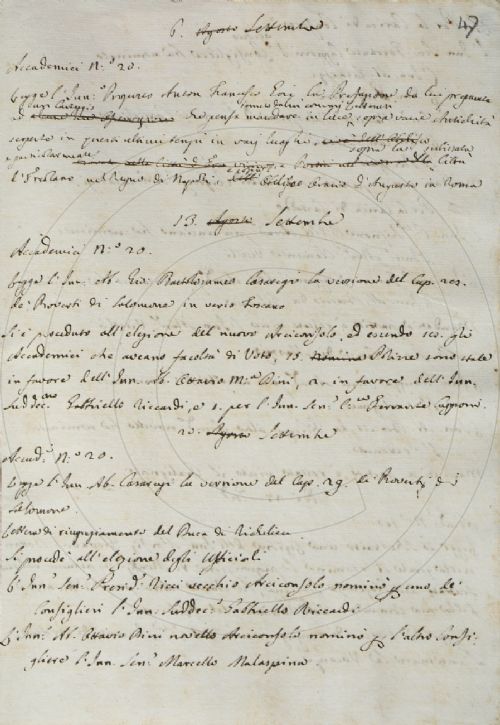 47
6. Agosto Settembre
Accademici N.° 20.
Legge l'Inn. Proposto Anton Francesco Gori la Prefazione da lui preparata
ed che pensa mandare in luce sopra varie Antichità
scoperte in questi ultimi tempi in varj luoghi,
e particolarmente città
l'Ercolano nel Regno di Napoli, e dell'Obelisco d'Augusto in Roma
13. Agosto Settembre
Accademici N.° 20.
Legge l'Inn. Ab. Gio. Bartolommeo Casaregi la versione del Cap. 28.
de' Proverbi di Salomone in verso Toscano
Si è proceduto all'elezione del nuovo Arciconsolo, ed essendo 18. gli
Accademici che aveano facoltà di Voto, 15. Nomine Polizze sono state
in favore dell'Inn. Ab. Ottavio M.a Bini, 2. in favore dell'Inn.
Suddec.no Gabbriello Riccardi, e 1. per l'Inn. Sen. Ferrante Capponi.
20. Agosto Settembre
Accad.i N.° 20.
Legge l'Inn. Ab. Casaregi la versione del Cap. 29. de' Proverbj di
Salomone.
Lettera di ringraziamento del Duca di Richelieu.
Si procede all'elezione degli Ufficiali
L'Inn. Sen. Presid. Ricci vecchio Arciconsolo nominò per uno de'
Consiglieri l'Inn. Suddec. Gabbriello Riccardi
L'Inn. Ab. Ottavio Bini novello Arciconsolo nominò per l'altro Consi-
gliere l'Inn. Sen. Marcello Malaspina